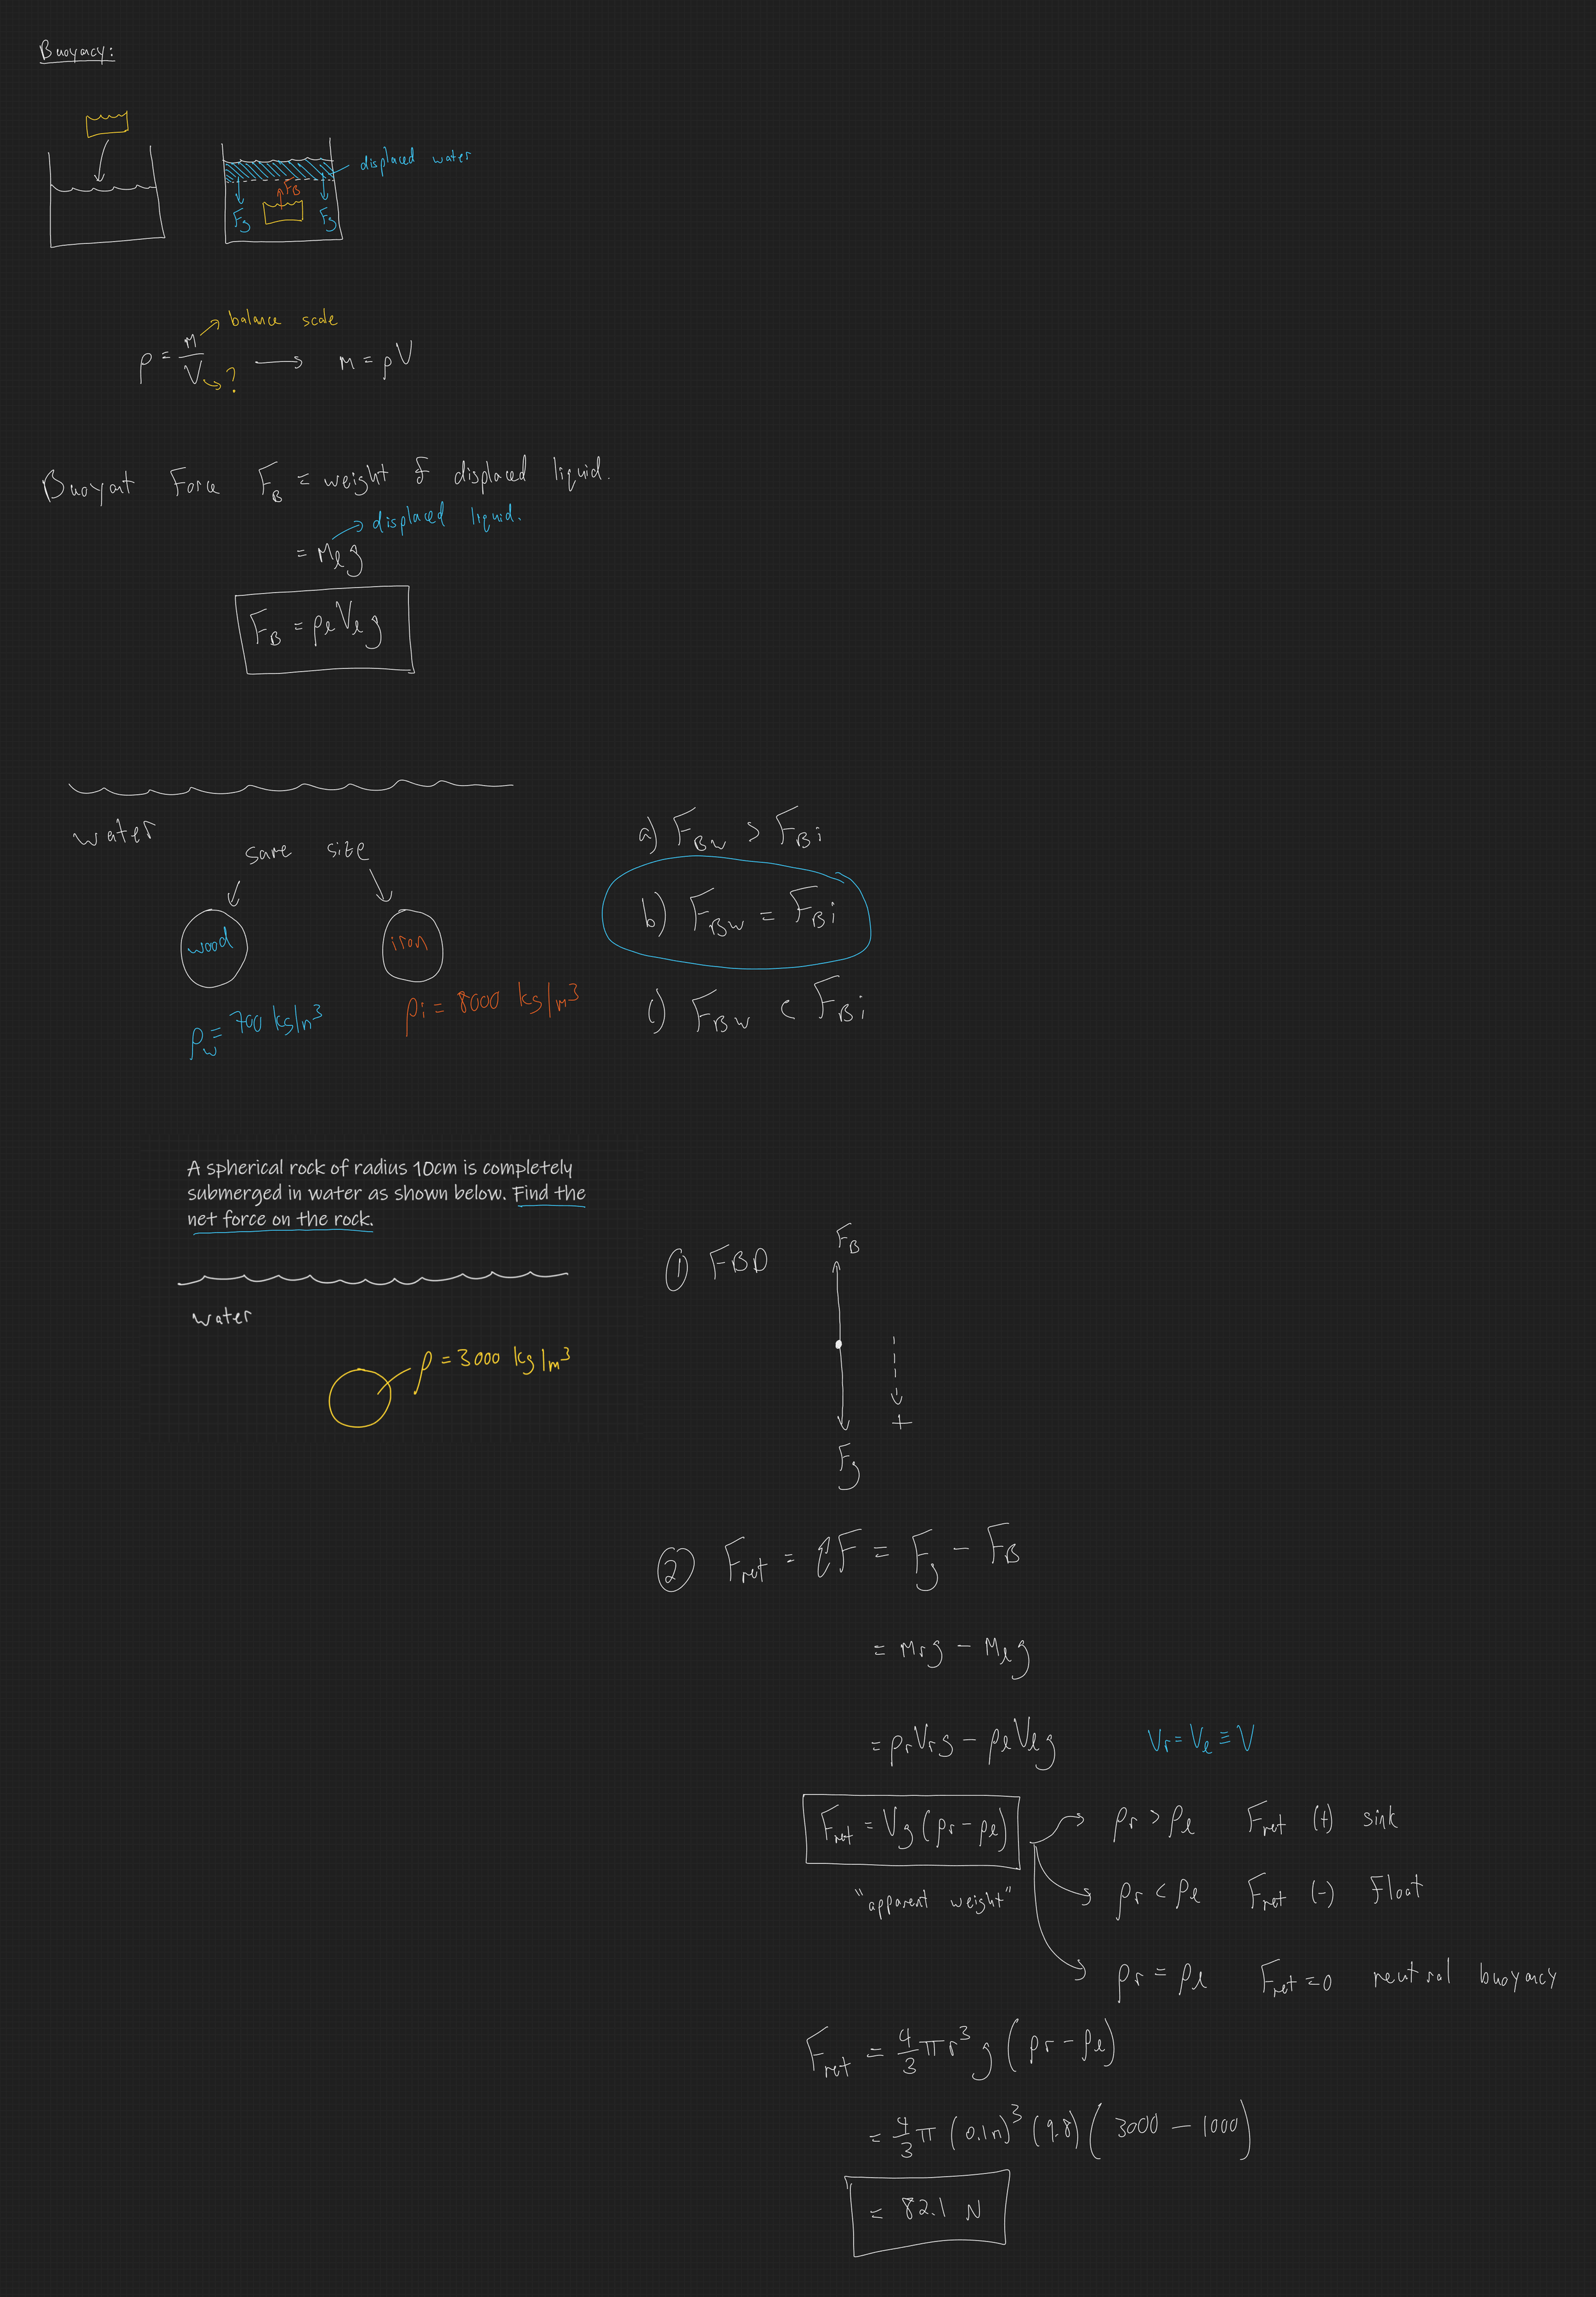 Buoyancy:
displaced water
F_B
F_g F_g
balance scale
ρ = m/V → m = ρV
?
Buoyant Force F_B = weight of displaced liquid.
displaced liquid.
= m_ℓ g
F_B = ρ_ℓ V_ℓ g
water
same size
wood
iron
ρ_w = 700 kg/m³
ρ_i = 8000 kg/m³
a) F_Bw > F_Bi
b) F_Bw = F_Bi
c) F_Bw < F_Bi
A spherical rock of radius 10cm is completely
submerged in water as shown below. Find the
net force on the rock.
water
ρ = 3000 kg/m³
① FBD
F_B
+
F_g
② F_net = ΣF = F_g − F_B
= m_r g − m_ℓ g
= ρ_r V_r g − ρ_ℓ V_ℓ g
V_r = V_ℓ ≡ V
F_net = Vg(ρ_r − ρ_ℓ)
"apparent weight"
ρ_r > ρ_ℓ F_net (+) sink
ρ_r < ρ_ℓ F_net (−) float
ρ_r = ρ_ℓ F_net = 0 neutral buoyancy
F_net = 4/3 π r³ g (ρ_r − ρ_ℓ)
= 4/3 π (0.1m)³ (9.8) (3000 − 1000)
= 82.1 N